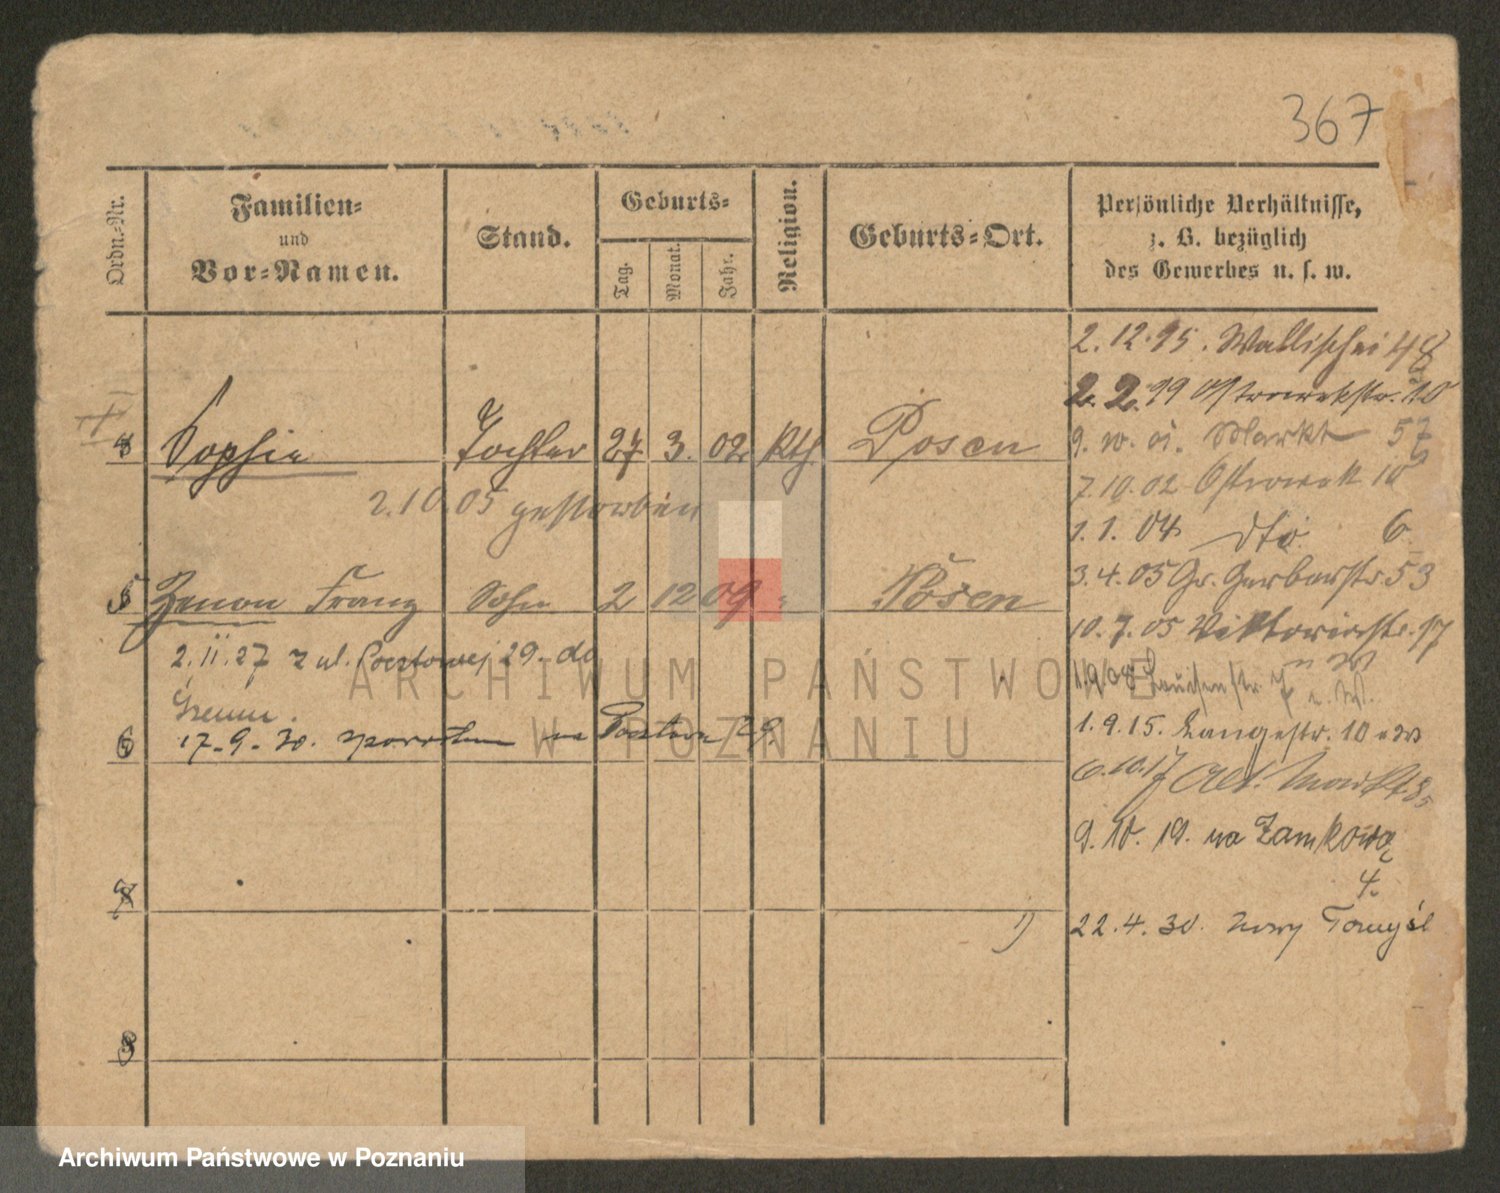 367
Ordn.-Nr.
Familien-
und
Vor-Namen.
Stand.
Geburts-
Tag.
Monat.
Jahr.
Religion.
Geburts-Ort.
Persönliche Verhältnisse,
z. B. bezüglich
des Gewerbes u. s. w.
2.12.95. Wallischei 48
2.2.99 Ostrowekstr. 10
4 Sophie Tochter 27 3. 02. Kth. Posen
9. Markt 57
7.10.02 Ostrowek 10
2.10.05 gestorben
1.1.04 dto. 6
3.4.05 Gr. Gerberstr 53
5 Zenon Franz Sohn 2 12 09 Posen
10.7.05 Viktoriastr. 17
2.11.27 z ul. Pocztowej 29. do
1.9.15. Langestr. 10
6 17.9.30. 29.
6.10.17 Alt. Markt 85
9.10.19. na Zamkową
4.
7
1) 22.4.30. Nowy Tomyśl
8
ARCHIWUM PAŃSTWOWE
W POZNANIU
Archiwum Państwowe w Poznaniu